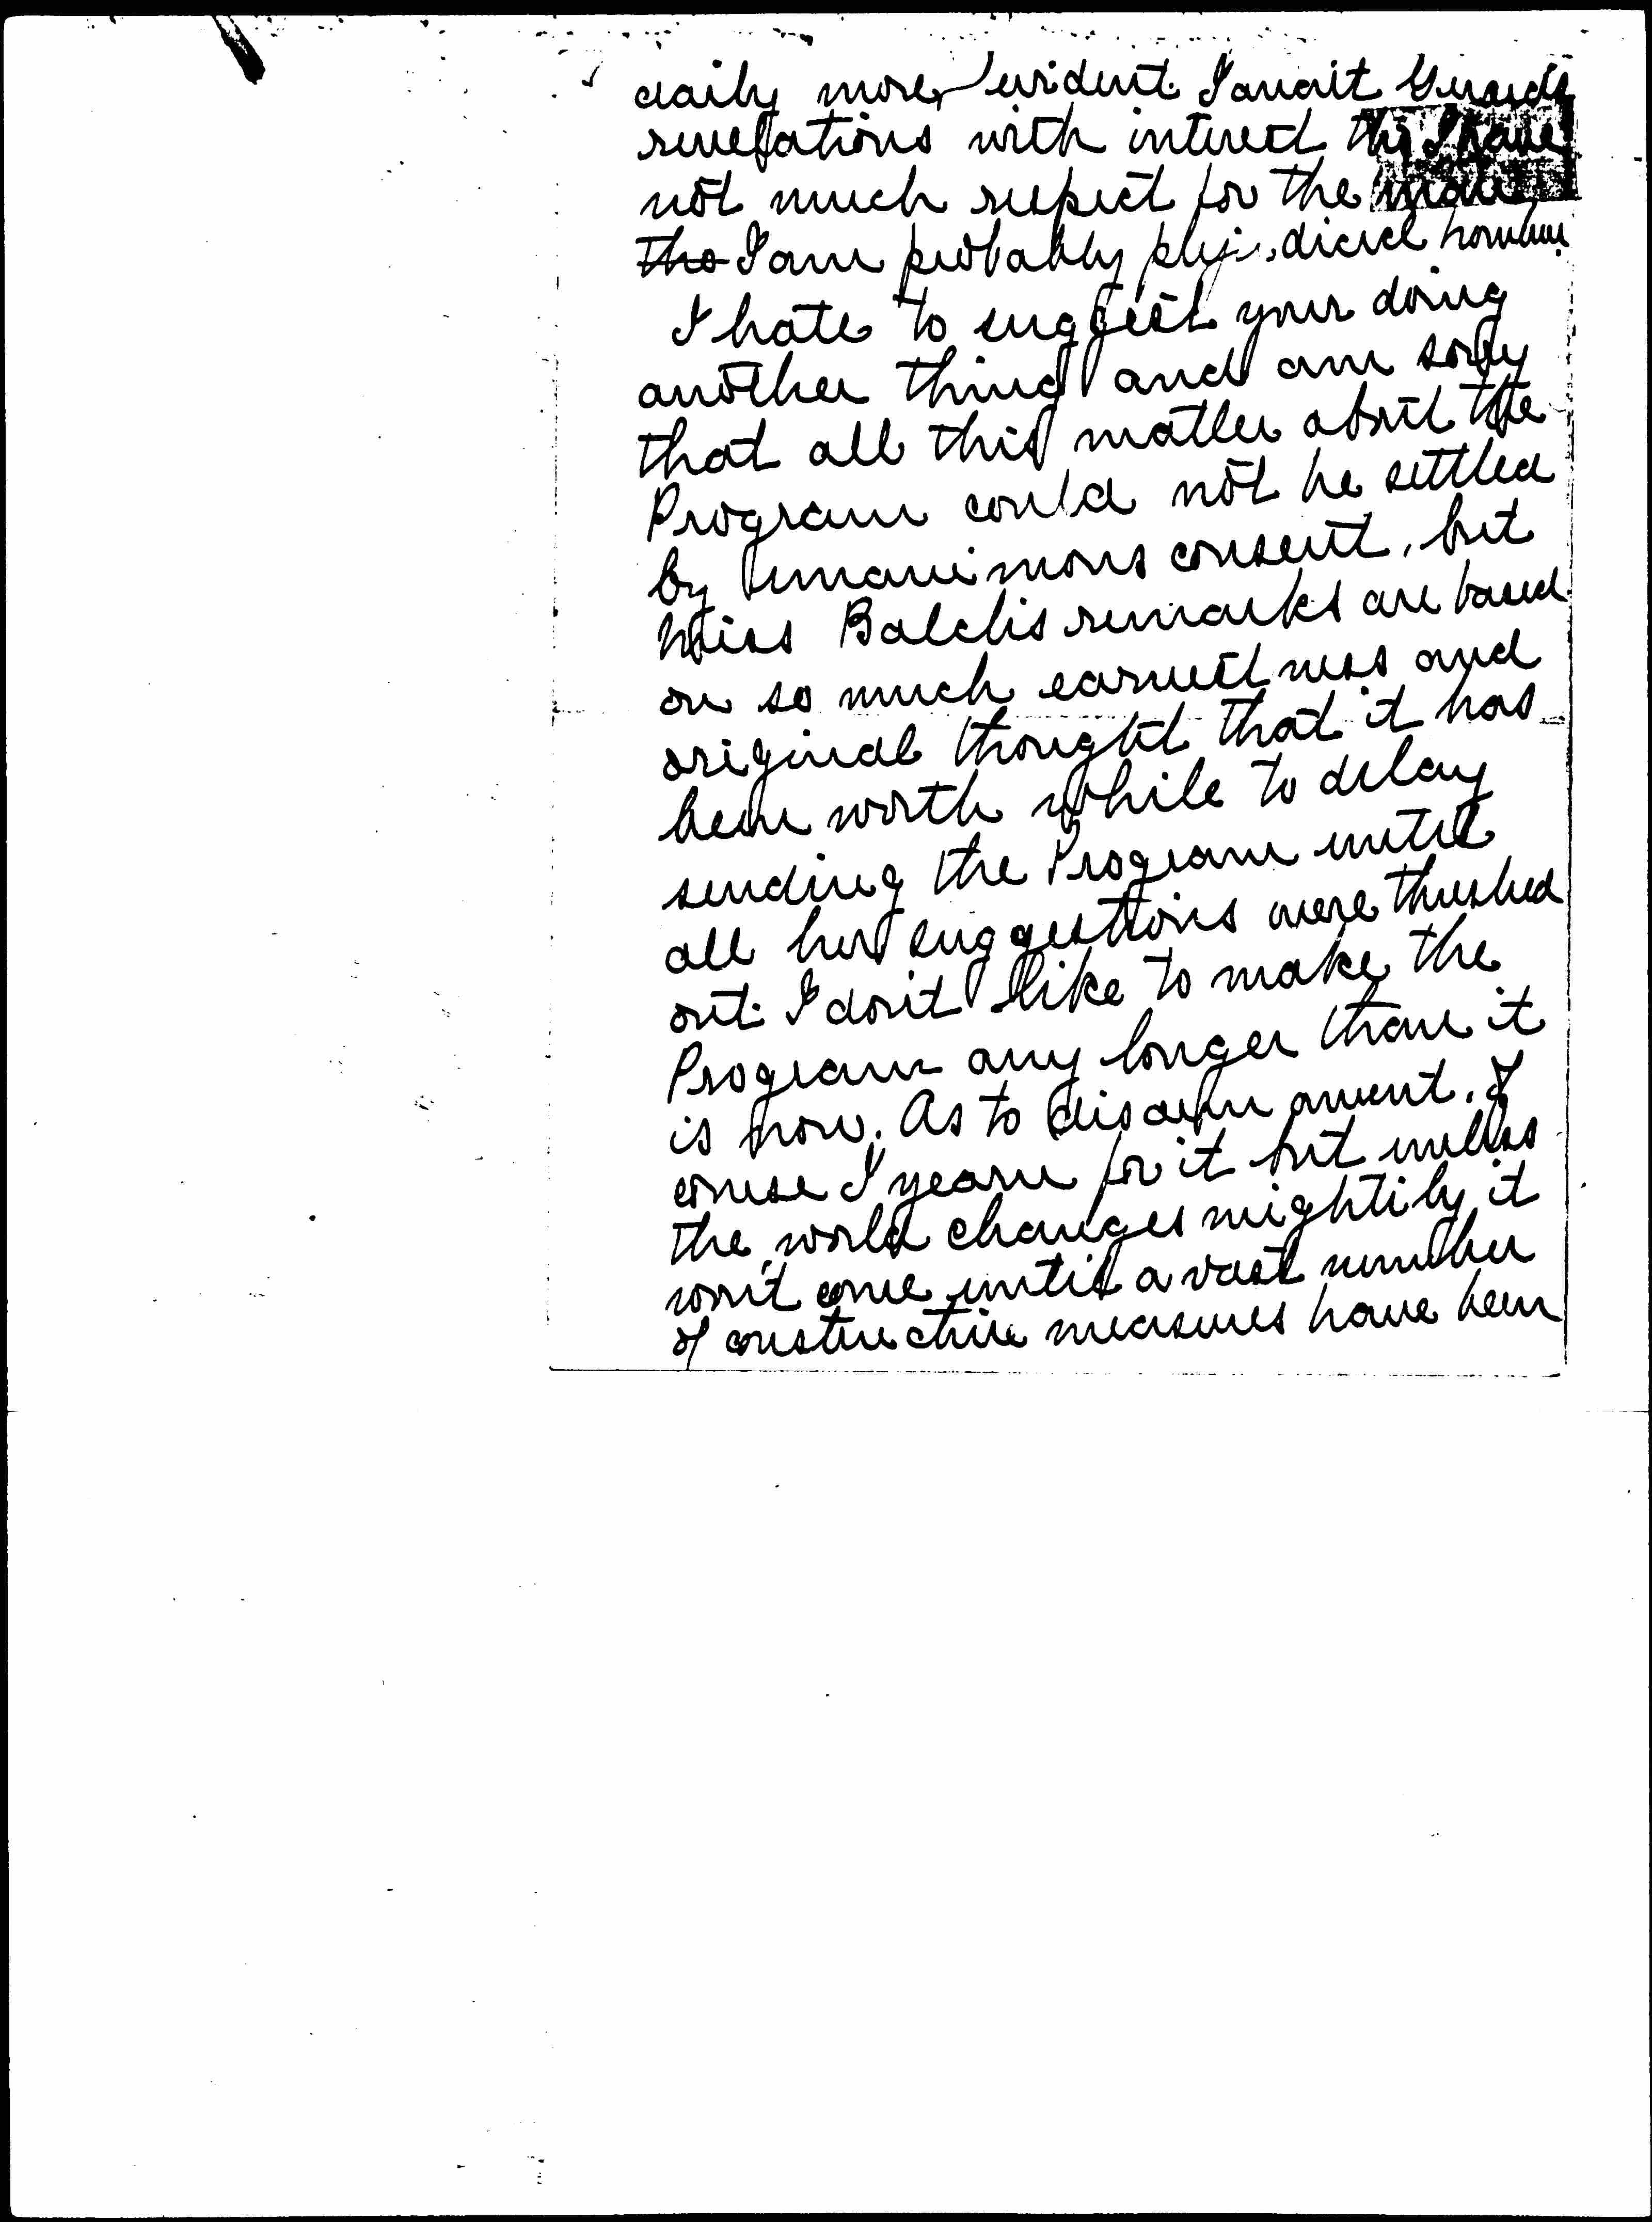 daily more evident. I await
revelations with interest tho I have
not much respect for the man
tho I am probably prejudiced however.
I hate to suggest your doing
another thing and am sorry
that all this matter about the
Program could not be settled
by unanimous consent, but
Miss Balch's remarks are based
on so much earnestness and
original thought that it has
been worth while to delay
sending the Program until
all her suggestions were threshed
out. I don't like to make the
Program any longer than it
is now. As to disarmament, of
course I yearn for it but unless
the world changes mightily it
won't come until a vast number
of constructive measures have been